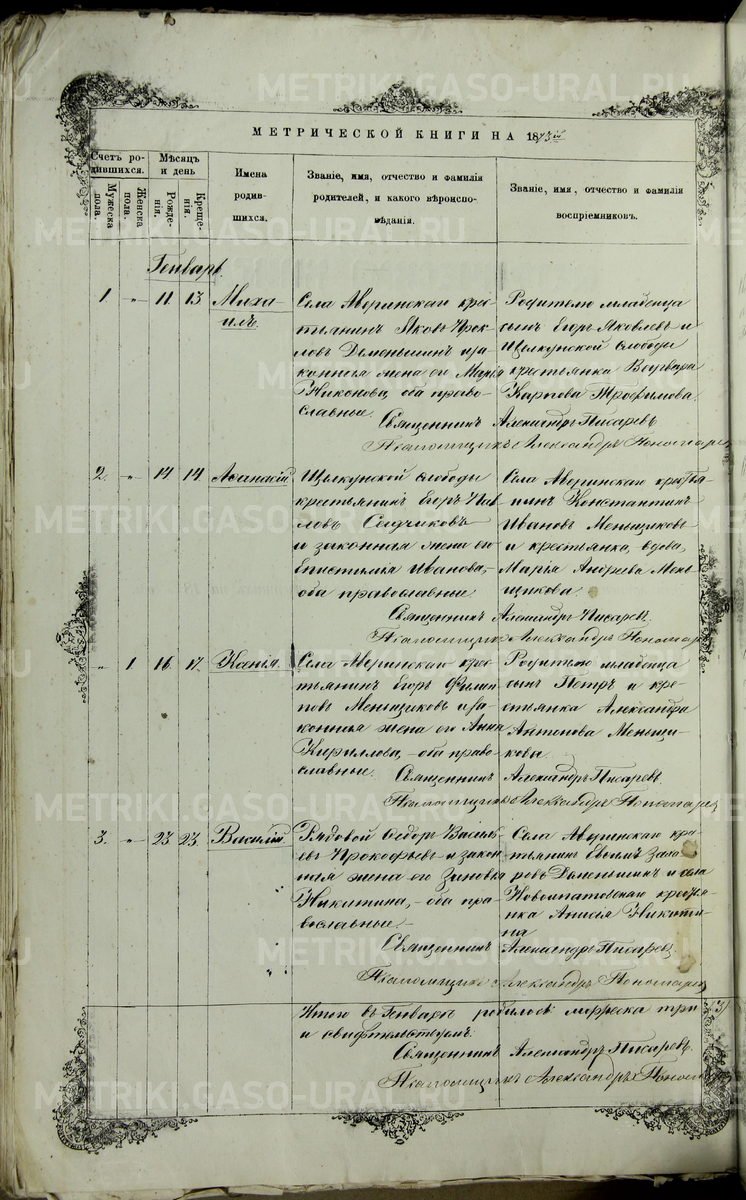 МЕТРИЧЕСКОЙ КНИГИ НА 1873й
Счетъ ро-
дившихся.
Мужеска
пола.
Женска
пола.
Мѣсяцъ
и день
Рожде-
нія.
Креще-
нія.
Имена
родив-
шихся.
Званіе, имя, отчество и фамилія
родителей, и какого вѣроиспо-
вѣданія.
Званіе, имя, отчество и фамилія
воспріемниковъ.
Генварь.
1 " 11 13 Миха-
илъ.
Села Аверинскаго крес-
тьянинъ Яковъ Прок-
ловъ Деменьшинъ и за-
конная жена его Марія
Никонова, оба право-
славные.
Родителю младенца
сынъ Егоръ Яковлевъ и
Щелкунской слободы
крестьянка
Карпова Трофимова.
Священникъ Александръ Писаревъ.
Псаломщикъ Александръ Пономарев
2. " 14 14 Аѳанасій
Щелкунской слободы
крестьянинъ Егоръ Пав-
ловъ
и законная жена его
Епистимія Иванова,
оба православные
Села Аверинскаго крестья-
нинъ Константинъ
Ивановъ Меньщиковъ
и крестьянка, вдова,
Марія Андреева Мень-
щикова
Священникъ Александръ Писарев
Псаломщикъ Александръ Пономар
" 1 16 17 Ксенія.
Села Аверинскаго крес-
тьянинъ Егоръ Филип-
повъ Меньщиковъ и за-
конная жена его Анна
Кириллова, оба право-
славные.
Родителю младенца
сынъ Петръ и кре-
стьянка Александра
Антонова Меньщи-
кова.
Священникъ Александръ Писаревъ.
Псаломщикъ Александръ Пономарев
3. " 23 23 Василій.
Рядовой Ѳедоръ Василь-
евъ Прокофьевъ и закон-
ная жена его Зиновья
Никитина, оба пра-
вославные.
Села Аверинскаго кре-
стьянинъ Евѳимъ Заха-
ровъ Деменьшинъ и села
Новоипатовскаго крестья-
нка Анисія Никити-
на
Священникъ Александръ Писарев
Псаломщикъ Александръ Пономарев
Итого въ Генварѣ родилось мужеска три
и
Священникъ Александръ Писаревъ.
Псаломщикъ Александръ Пономар
METRIKI.GASO-URAL.RU